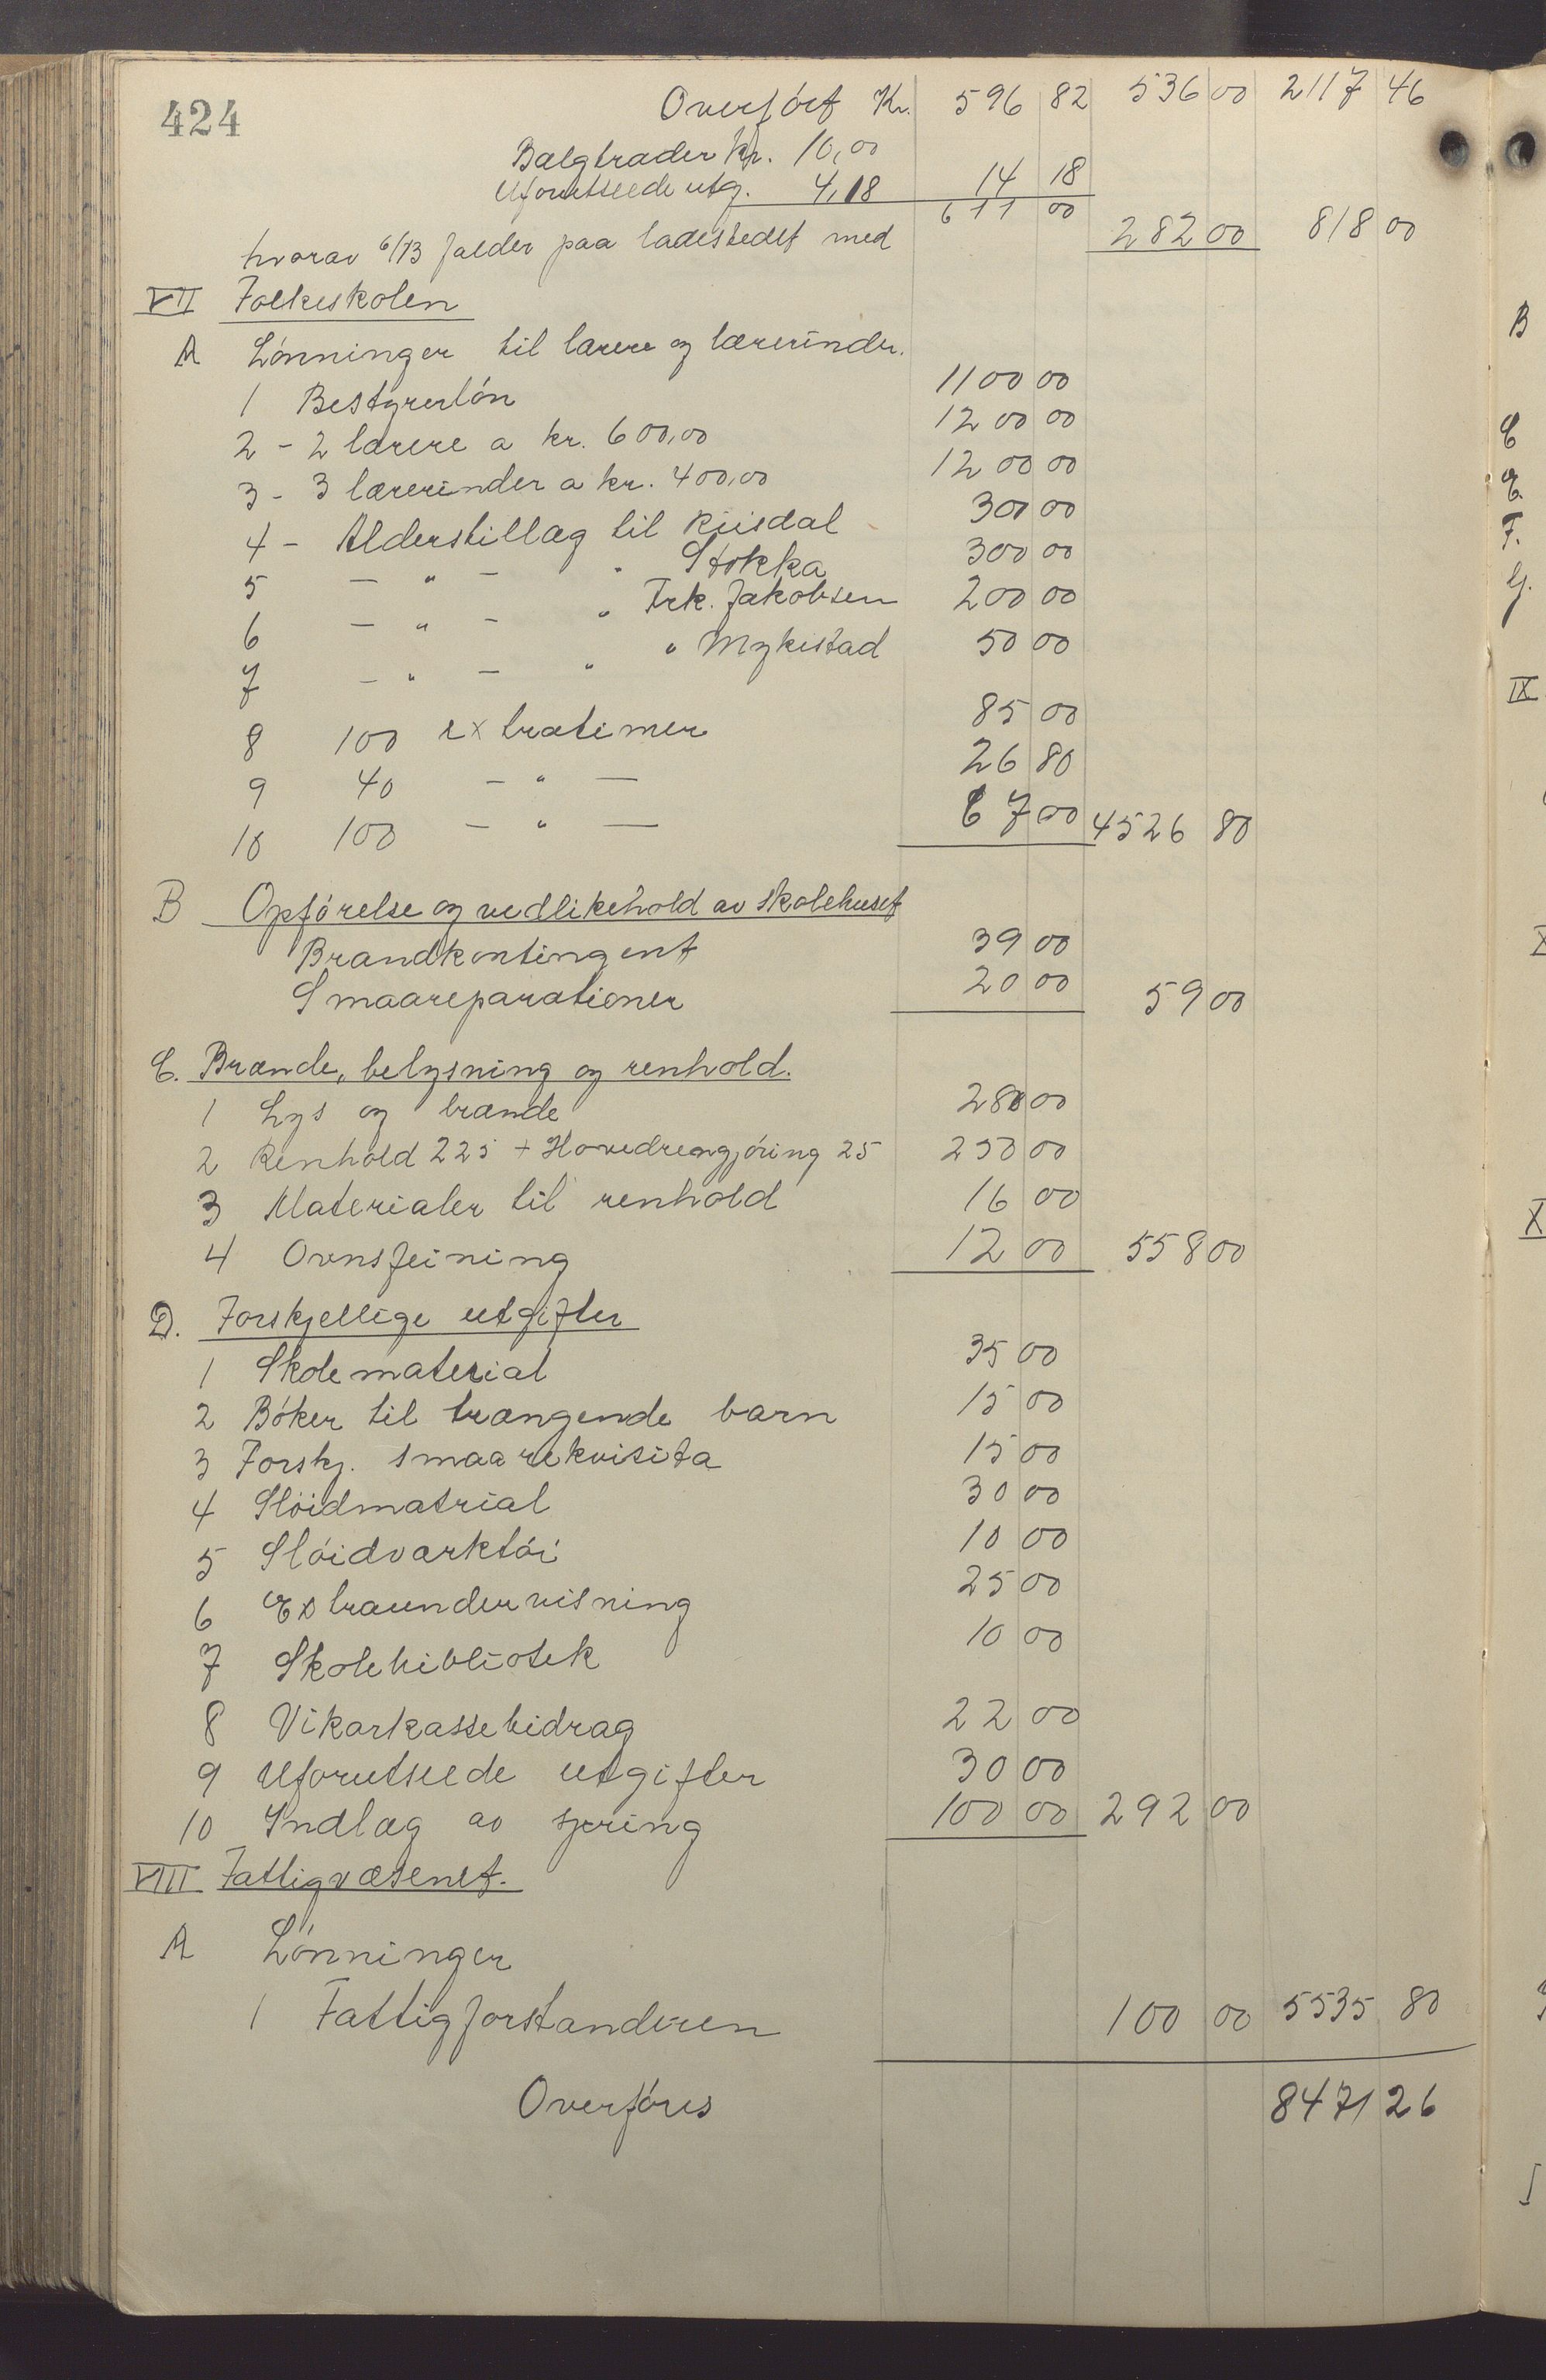 424
Overført Kr. 596 82 536 00 2117 46
Bælgtræder kr. 10,00
Uforutseede utg. 4,18 14 18
611 00
hvorav 6/13 falder paa ladestedet med 282 00 818 00
VII Folkeskolen
A Lønninger til lærere og lærerinder.
1 Bestyrerløn 1100 00
2 - 2 lærere a kr. 600,00 1200 00
3 - 3 lærerinder a kr. 400,00 1200 00
4 - Alderstillæg til Riisdal 300 00
5 — " — " Stokka 300 00
6 — " — " Frk. Jakobsen 200 00
7 — " — " " Mykistad 50 00
8 100 extratimer 85 00
9 40 — " — 26 80
10 100 — " — 67 00 4526 80
B Opførelse og vedlikehold av skolehuset
Brandkontingent 39 00
Smaareparationer 20 00 59 00
C. Brænde, belysning og renhold.
1 Lys og brænde 280 00
2 Renhold 225 + Hovedrengjøring 25 250 00
3 Materialer til renhold 16 00
4 Ovnsfeining 12 00 558 00
D. Forskjellige utgifter
1 Skolematerial 35 00
2 Bøker til trængende barn 15 00
3 Forskj. smaarekvisita 15 00
4 Sløidmatrial 30 00
5 Sløidværktøi 10 00
6 Extraundervisning 25 00
7 Skolebibliotek 10 00
8 Vikarkassebidrag 22 00
9 Uforutseede utgifter 30 00
10 Indlæg av spring 100 00 292 00
VIII Fattigvæsenet.
A Lønninger
1 Fattigforstanderen 100 00 5535 80
Overføres 8471 26
B
C
E.
F.
G.
IX
X